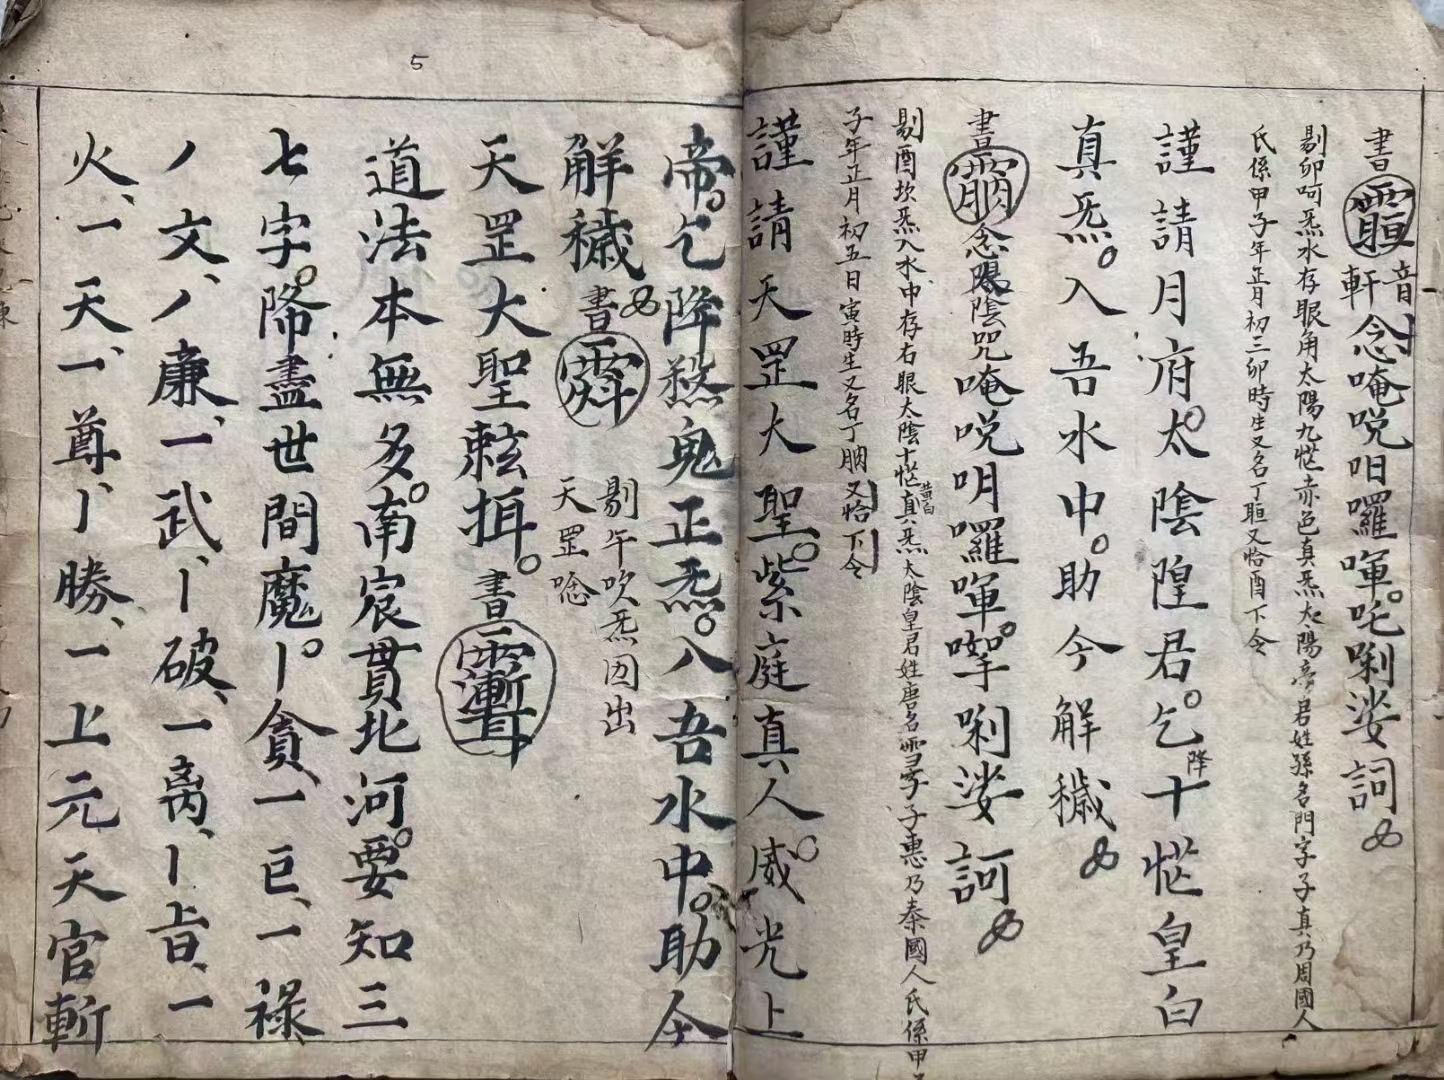 書䨻音軒念唵哾呾囉㖇吒唎娑訶
剔卯呵炁水存眼角太陽九㤀赤色真炁太陽帝君姓孫名開字子真乃周國人
氏係甲子年正月初三卯時生又名丁晅又恰酉下令
謹請月府太陰隍君乞降十㤀皇白
真炁入吾水中助今解穢
書念陰咒唵哾明囉㖇唎娑訶
剔酉坎炁入水中存右眼太陰十㤀黃白真炁太陰皇君姓唐名雪字子惠乃秦國人氏係甲
子年正月初五日寅時生又名丁胭又恰下令
謹請天罡大聖紫庭真人威光上
帝乞降煞鬼正炁入吾水中助今
解穢書
剔午吹炁因出
天罡唸
天罡大聖
書
道法本無多南宸貫北河要知三
七字降盡世間魔丨貪、一巨、一祿、
丿文、丿廉、一武、丨破、一离、丨旨、一
火、一天、一尊、丨勝、一上元天官斬
5